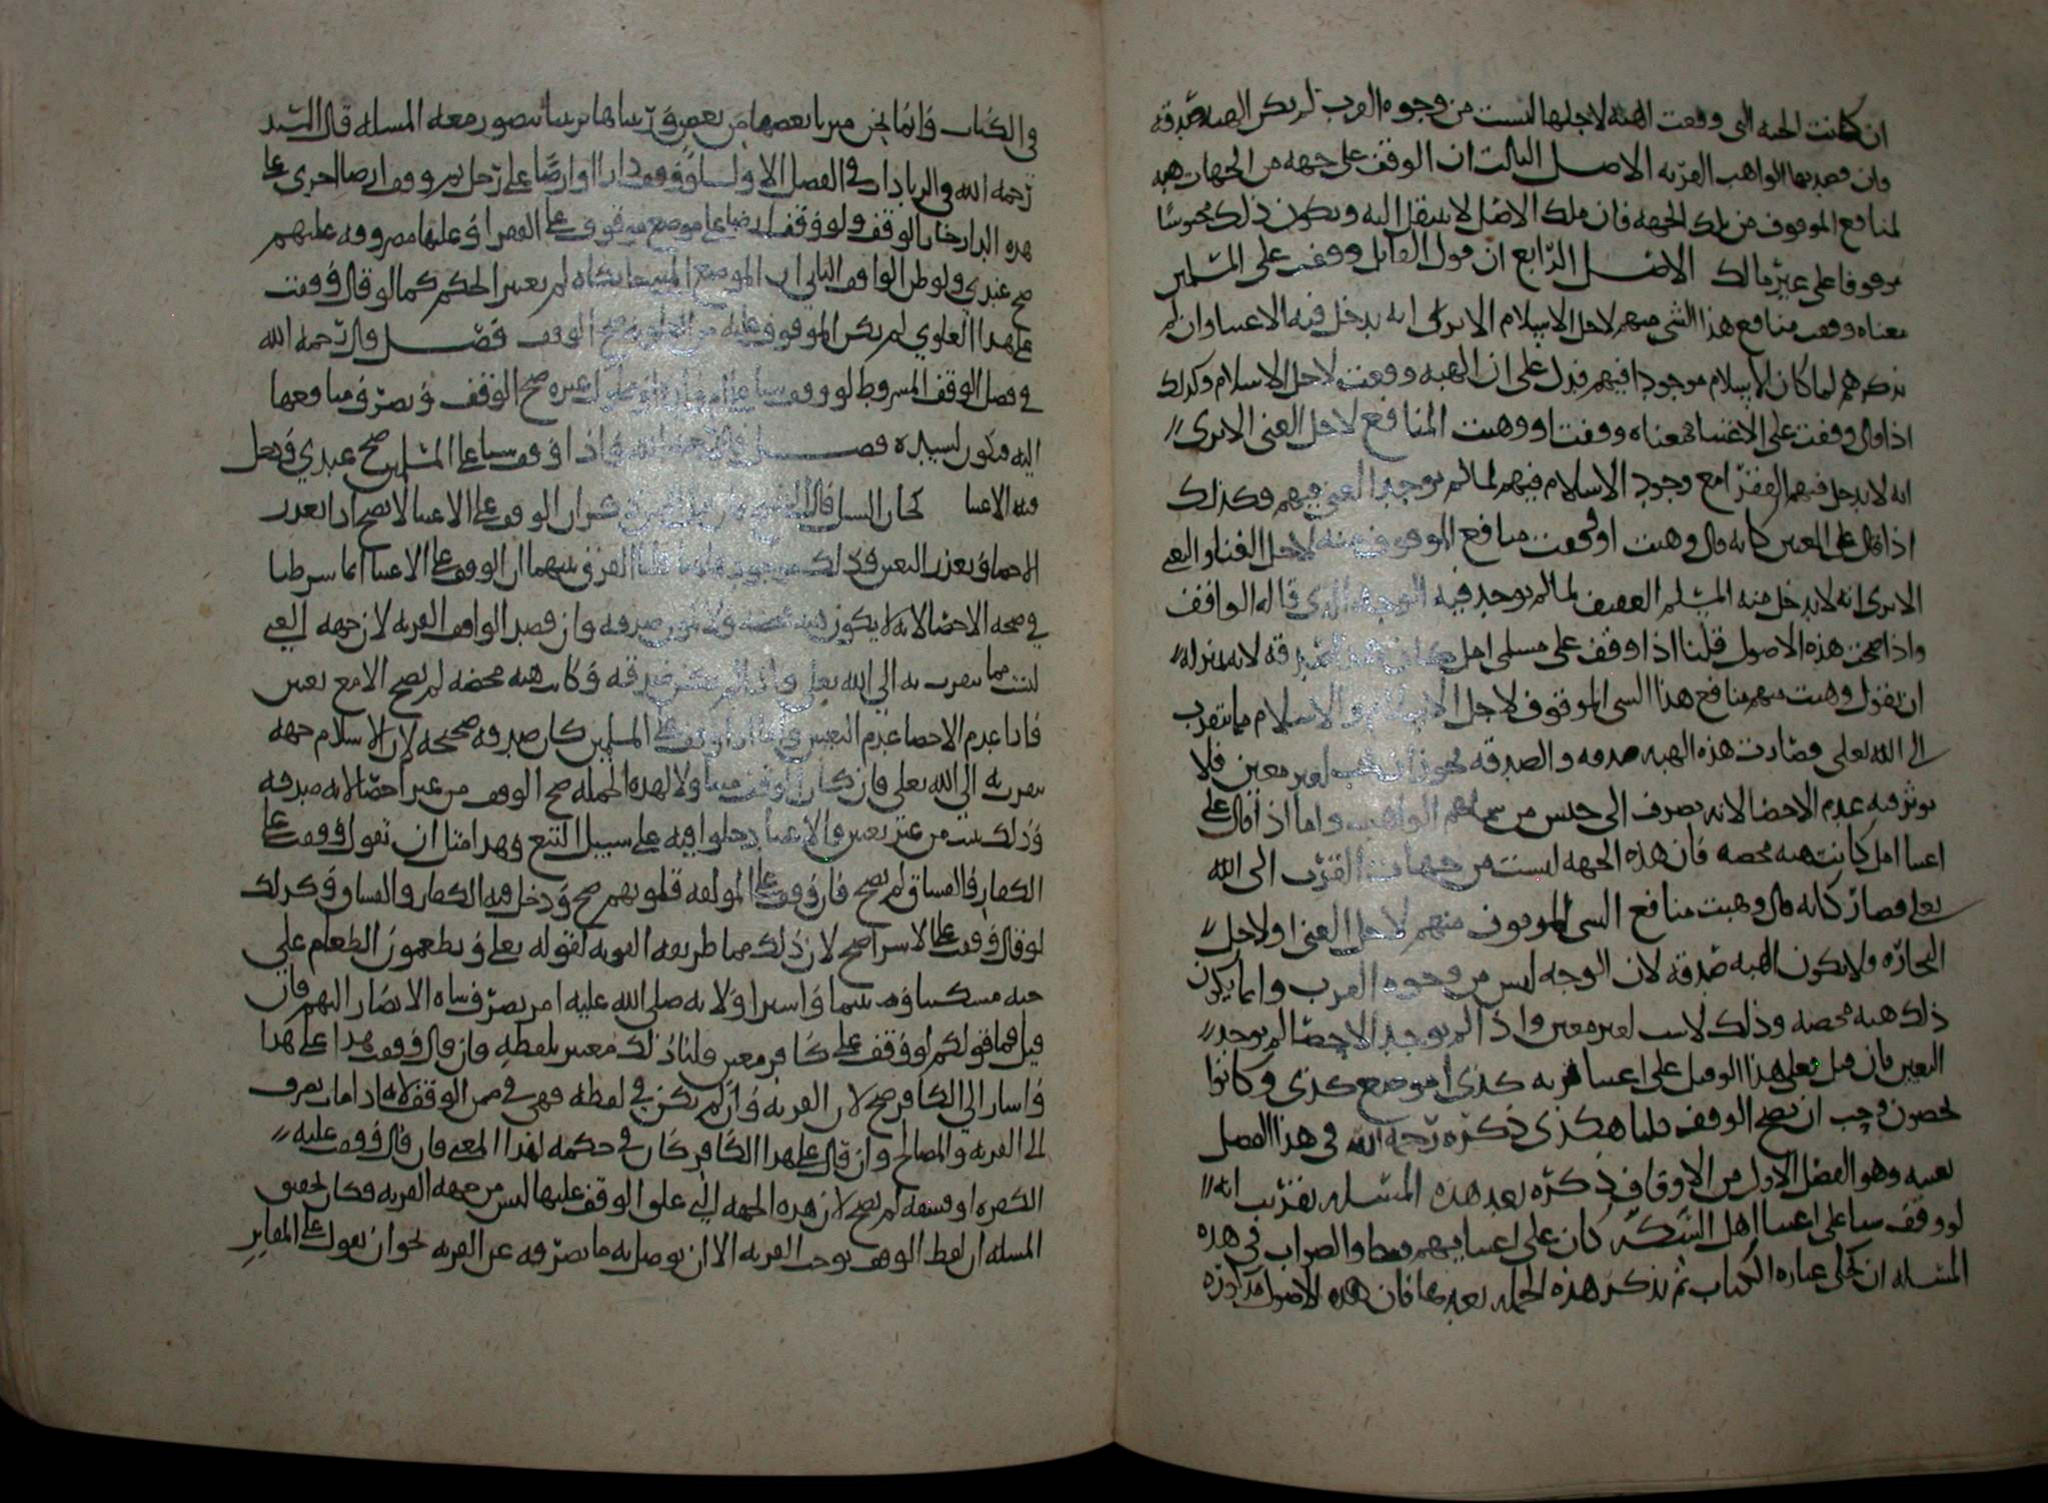 ان كانت الجهة التي وقعت الهبة لاجلها ليست من وجوه القرب لم يكن الهبة صدقة
وان قصد بها الواهب القربة الاصل الثالث ان الوقف على جهة من الجهات هبة
لمنافع الموقوف من تلك الجهة فان ملك الاصل لا ينتقل اليه ويكون ذلك محبوسا
موقوفا على غير مالك الاصل الرابع ان قول القائل وقفت على المسلمين
معناه وقفت منافع هذا الشي منهم لاجل الاسلام الا ترى انه يدخل فيه الاغنيا وان لم
يذكرهم لما كان الاسلام موجودا فيهم فدل على ان الهبة وقعت لاجل الاسلام وكذلك
اذا قال وقفت على الاغنيا فمعناه وقفت او وهبت المنافع لاجل الغنى الا ترى
انه لا يدخل فيهم الفقرا مع وجود الاسلام فيهم لما لم يوجد الغنى فيهم وكذلك
اذا قال على المغنين كانه قال وهبت منافع الموقوف منه لاجل الغنا والبغي
الا ترى انه لا يدخل فيه المسلم العفيف لما لم يوجد فيه الوجه الذي قاله الواقف
واذا صحت هذه الاصول قلنا اذا وقف على مسلمي امل كان هذه الصدقة لانه بمنزلة
ان يقول وهبت منهم منافع هذا الشي الموقوف لاجل الاسلام والاسلام مما يتقرب
الى الله تعالى فصارت هذه الهبة صدقة والصدقة يجوز ان تجب لغير معين فلا
يوثر فيه عدم الاحصا لانه يصرف الى جنس من سماهم الواهب واما اذا قال على
اغنيا امل كانت هبة محضة فان هذه الجهة ليست من جهات القرب الى الله
تعالى فصار كانه قال وهبت منافع الشي الموقوف منهم لاجل الغنى او لاجل
التجارة ولا يكون الهبة صدقة لان الوجه ليس من وجوه القرب وانما يكون
ذلك هبة محضة وذلك لغير معين واذا لم يوجد الاحصا لم يوجد
التعيين فان قيل فعلى هذا لو قيل على اغنيا قرية كذى او موضع كذى وكانوا
يحصون وجب ان يصح الوقف قلنا هكذى ذكره رحمه الله في هذا الفصل
بعينه وهو الفصل الاول من الاوقاف ذكره بعد هذه المسئلة بقريب انه
لو وقف شيا على اغنيا اهل السكة كان على اغنيايهم والصواب في هذه
المسئلة ان تحكى عبارة الكتاب ثم نذكر هذه الجملة بعدها فان هذه الاصول
في الكتاب وانما نحن ميزنا بعضها من بعض ورتبناها ترتيبا يتصور معه المسئلة قال السيد
رحمه الله في الزيادات في الفصل الاول ولو وقف دارا او ارضا على رجل ثم وقف ارضا اخرى على
هذه الدار جاز الوقف ولو وقف ارضا على موضع موقوف على الفقرا وغلتها مصروفة عليهم
صح عندي ولو ظن الواقف الثاني ان الموضع لم يتغير الحكم كما لو قال وقفت
على هذا العلوي لم يكن الموقوف عليه من العلوية صح الوقف فصل قال رحمه الله
في فصل الوقف المشروط لو وقف شيا على غيره صح الوقف وتصرف منافعها
اليه وتكون لسيده فصل واذا وقف شيا على المسلمين صح عندي ودخل
فيه الاغنيا ان الوقف على الاغنيا لا يصح اذا تعذر
الاحصا وتعذر التعيين قلنا الفرق بينهما ان الوقف على الاغنيا انما شرطنا
في صحة الاحصا لانه لا يكون هبة محضة ولا تكون صدقة وان قصد الواقف القربة لان جهة الغنى
ليست مما يتقرب به الى الله تعالى واذا لم يكن صدقة وكانت هبة محضة لم يصح الا مع تعيين
فاذا عدم الاحصا عدم التعيين فاما اذا وقف على المسلمين كان صدقة صحيحة لان الاسلام جهة
يتقرب به الى الله تعالى فان كان الوقف متناولا لهذه الجملة صح الوقف من غير احصا لانه صدقة
وذلك يثبت من غير تعيين والاغنيا دخلوا فيه على سبيل التبع وهذا مثل ان تقول وقفت على
الكفار والفساق لم يصح فان وقف على المولفة قلوبهم صح ودخل فيه الكفار والفساق وكذلك
لو قال وقفت على الاسرا صح لان ذلك مما طريقه القربة لقوله تعالى ويطعمون الطعام على
حبه مسكينا ويتيما واسيرا ولانه صلى الله عليه امر بصرف شاة الانصار اليهم فان
قيل فما قولكم لو وقف على كافر معين قلنا ذلك معتبر بلفظه وان قال وقفت هذا على هذا
واشار الى الكافر صح لان القربة وان لم يكن في لفظه فهي في ضمن الوقف لانه اذا مات يصرف
الى القربة والمصالح وان قال على هذا الكافر كان في حكمه لهذا المعنى فان قال وقفت عليه
لكفره او فسقه لم يصح لان هذه الجهة التي علق الوقف عليها ليس من جهة القربة فكان تحقيق
المسئلة ان لفظ الوقف يوجب القربة الا ان يوصل به ما يصرفه عن القربة نحو ان يقول على المقابر